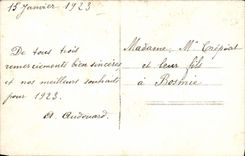 15 Janvier 1923
De tous trois
remerciements bien sincères
et nos meilleurs souhaits
pour 1923.
A. Audouard.
Madame, Mr Crépéat
et leur fils
à Bosmie